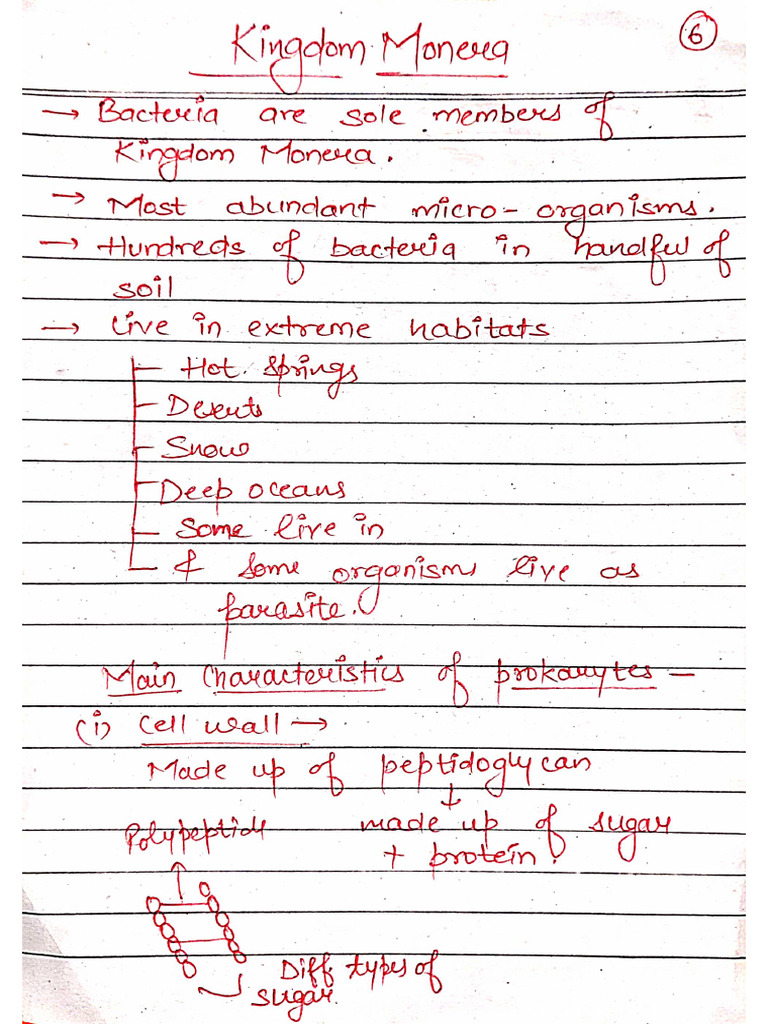 Kingdom Monera
6
→ Bacteria are sole members of
Kingdom Monera.
→ Most abundant micro-organisms.
→ Hundreds of bacteria in handful of
soil
→ Live in extreme habitats
Hot springs
Deserts
Snow
Deep oceans
Some live in
& some organisms live as
parasite.
Main Characteristics of prokaryotes –
(i) Cell wall →
Made up of peptidoglycan
↓
Polypeptide made up of sugar
+ protein.
Diff types of
sugar